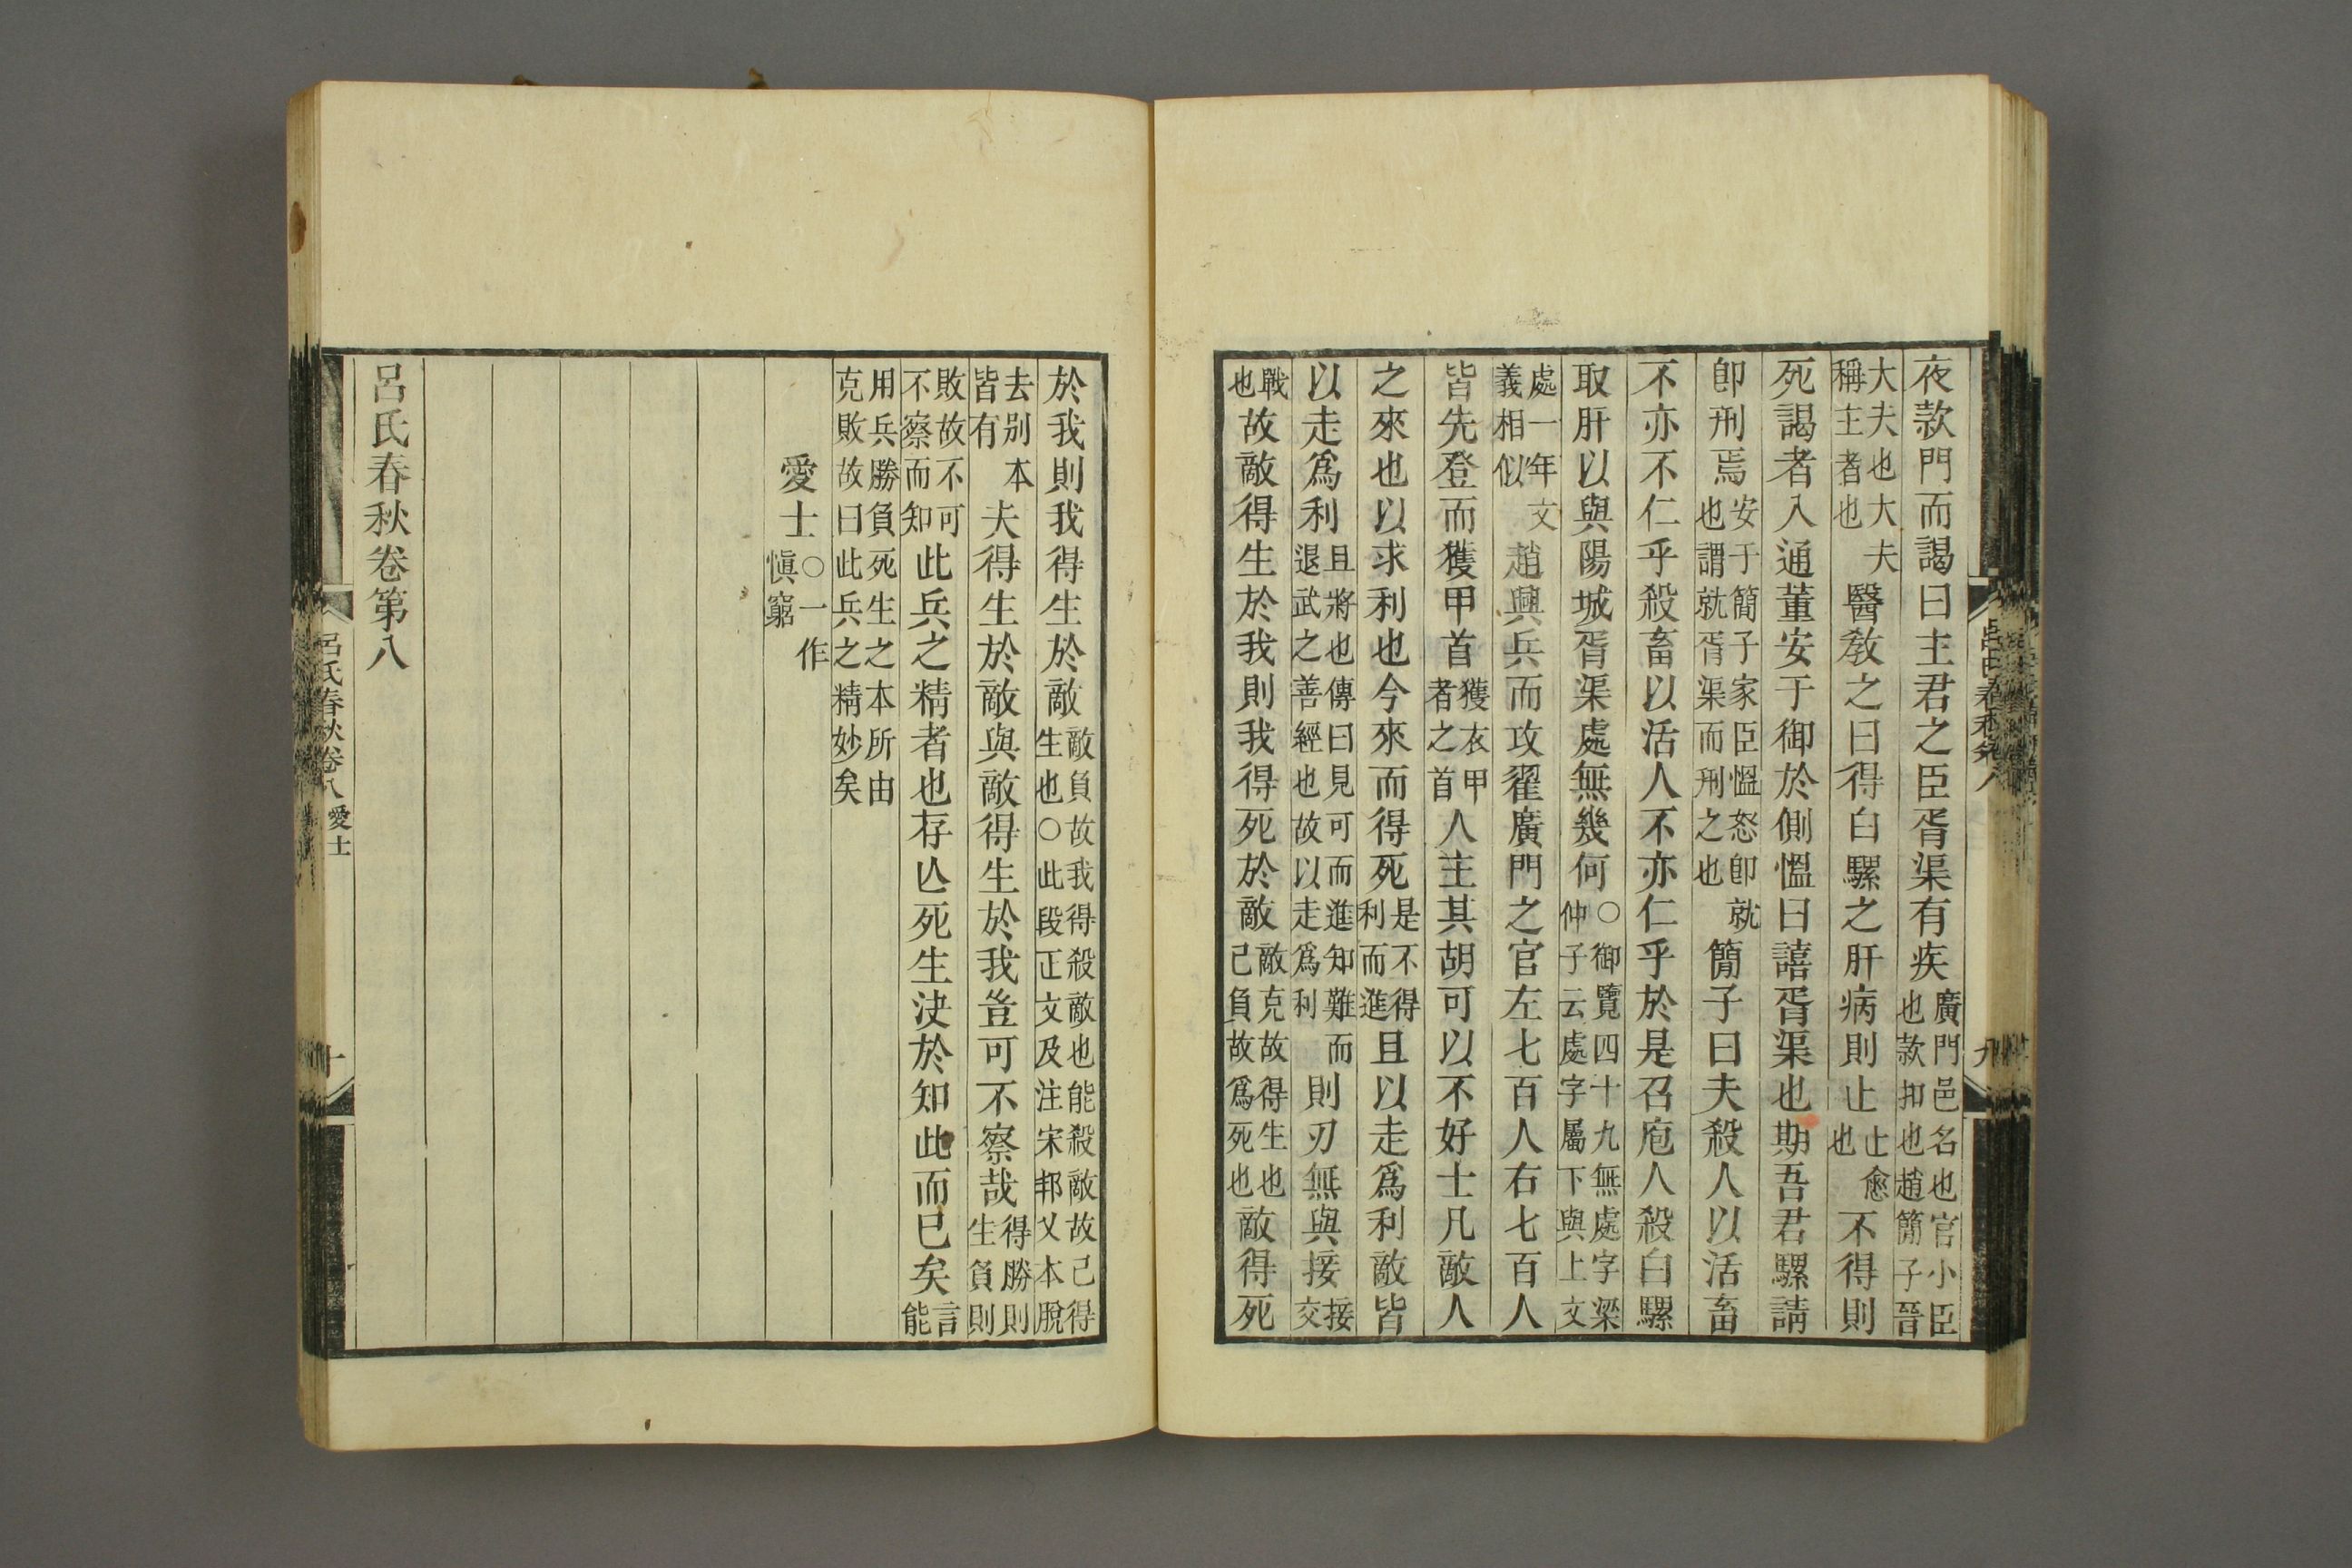 夜款門而謁曰主君之臣胥渠有疾廣門邑名也官小臣也款扣也趙簡子晉
大夫也大夫稱主者也醫教之曰得白騾之肝病則止止愈也不得則
死謁者入通董安于御於側慍曰譆胥渠也期吾君騾請
卽刑焉安于簡子家臣慍怒卽就也謂就胥渠而刑之也簡子曰夫殺人以活畜
不亦不仁乎殺畜以活人不亦仁乎於是召庖人殺白騾
取肝以與陽城胥渠處無幾何○御覽四十九無處字梁仲子云處字屬下與上文
處一年文義相似趙興兵而攻翟廣門之官左七百人右七百人
皆先登而獲甲首獲衣甲者之首人主其胡可以不好士凡敵人
之來也以求利也今來而得死是不得利而進且以走爲利敵皆
以走爲利且將也傳曰見可而進知難而退武之善經也故以走爲利則刃無與接接交
戰也故敵得生於我則我得死於敵敵克故得生也己負故爲死也敵得死
於我則我得生於敵敵負故我得殺敵也能殺敵故己得生也○此段正文及注宋邦乂本脫
去别本皆有夫得生於敵與敵得生於我豈可不察哉得勝則生負則
敗故不可不察而知此兵之精者也存亾死生決於知此而已矣言能
用兵勝負死生之本所由克敗故曰此兵之精妙矣
愛士○一作愼窮
呂氏春秋卷第八
呂氏春秋卷八 愛士 十